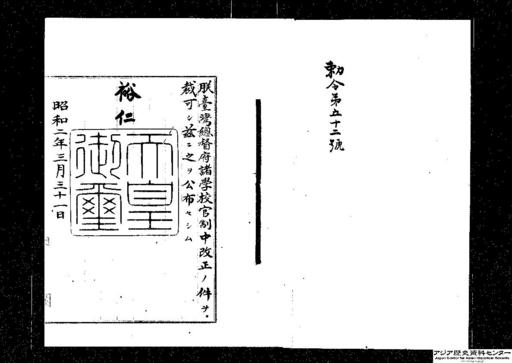 勅令第五十二號
朕臺灣總督府諸學校官制中改正ノ件ヲ
裁可シ茲ニ之ヲ公布セシム
裕仁
天皇御璽
昭和二年三月三十一日
アジア歴史資料センター
Japan Center for Asian Historical Records